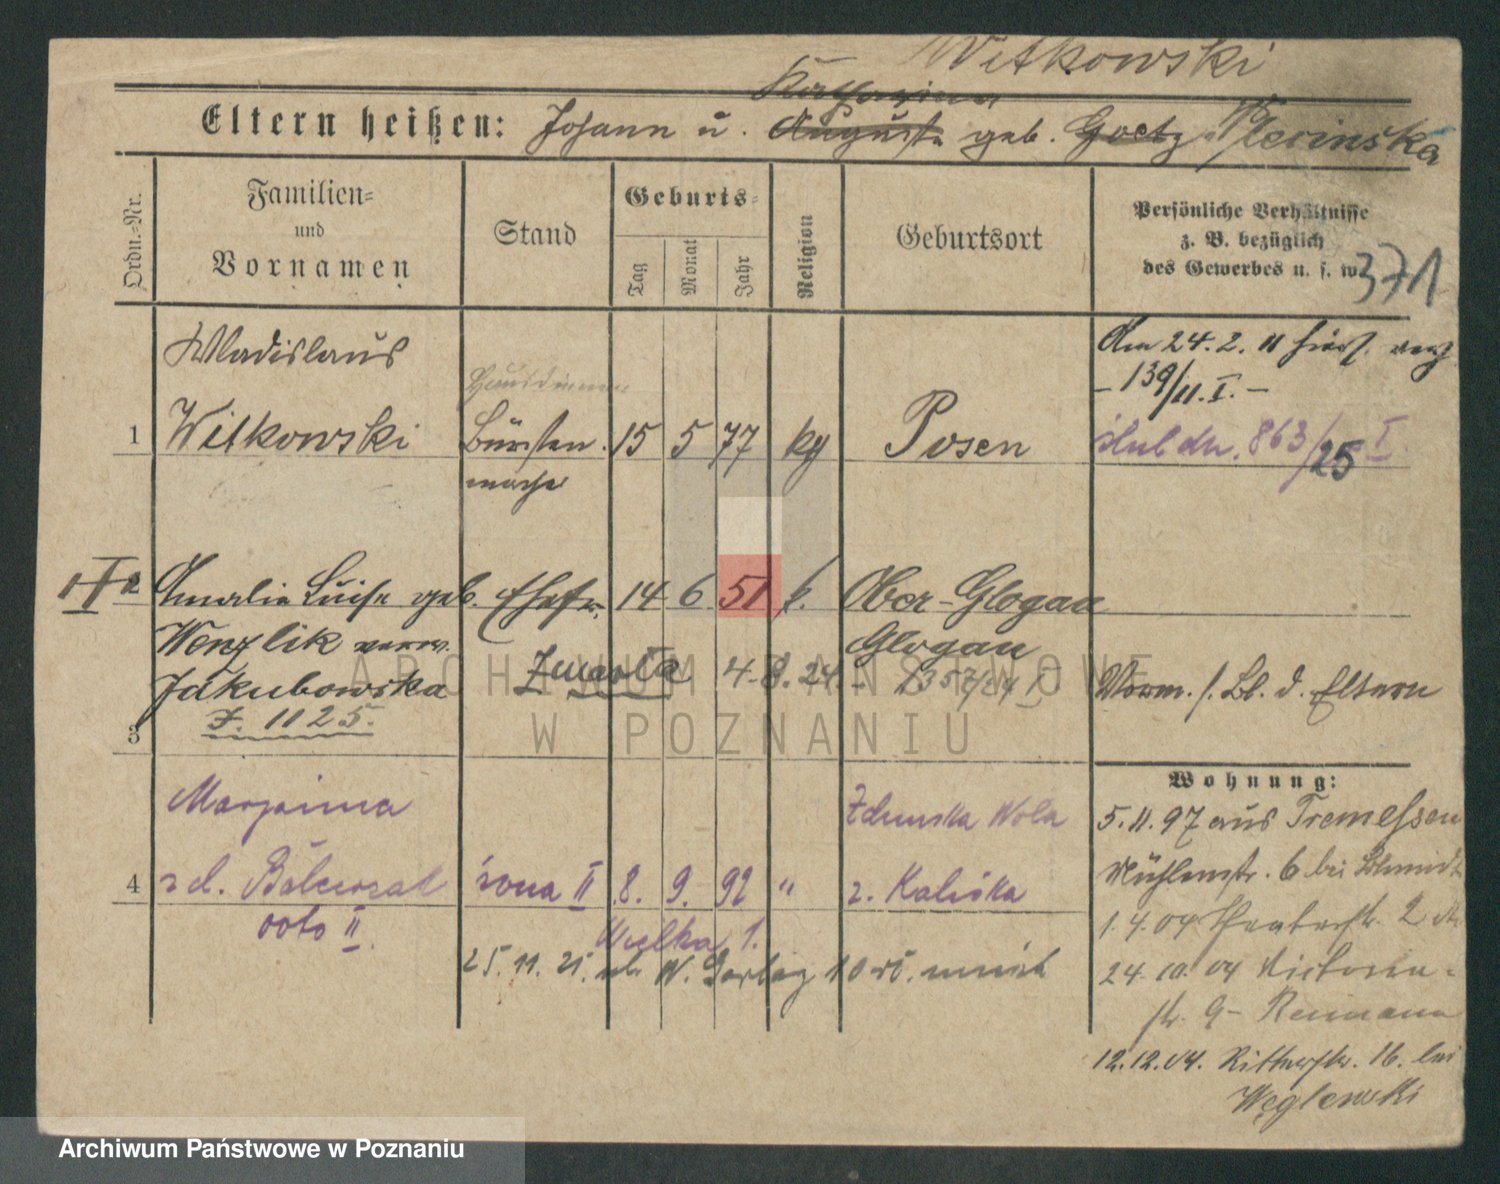 Witkowski
Katharina
Eltern heißen: Johann u. Auguste geb. Goetz Plecinska
Ordn.-Nr.
Familien-
und
Vornamen
Stand
Geburts-
Tag
Monat
Jahr
Religion
Geburtsort
Persönliche Verhältnisse
z. B. bezüglich
des Gewerbes u. s. w.
371
Wladislaus
Hausdiener
Am 24. 2. 11 hier
- 139/11. I. -
1 Witkowski Bürsten 15 5 77 kg Posen 863/25 I
macher
1 I 2 Amalie Luise geb. Ehefr. 14 6 51 k. Ober-Glogau
Wenzlik verw. Glogau
Jakubowska Zmarła 4.8.24 - 1357/24 I Vorm. s. Bl. d. Eltern
J. 1125.
3
Wohnung:
Marjanna Zduńska Wola 5.11.97 aus Tremessen
Mühlenstr. 6 bei Schmidt
4 z d. Balcerzak żona II 8. 9. 92 " z. Kaliska
1.4.04 Theaterstr. 2
voto II. Wielka 1.
25. 11. 21. W. Garbary 10
24.10.04 Victoria-
str. 9 - Reimann
12.12.04. Ritterstr. 16. bei
Węglewski
ARCHIWUM PAŃSTWOWE
W POZNANIU
Archiwum Państwowe w Poznaniu